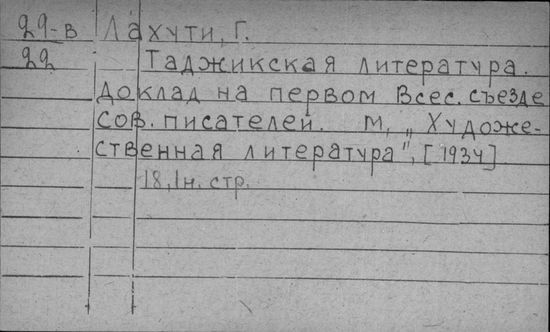 29-в Лахути, Г.
22 Таджикская литература.
Доклад на первом Всес. съезде
сов. писателей. М, „Художе-
ственная литература", [1934]
18, 1 н. стр.